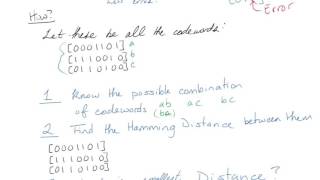 Error
How?
Let these be all the codewords:
[0001101] a
[1110010] b
[0110100] c
1 Know the possible combination
of codewords ab ac bc
(ba)
2 Find the Hamming Distance between them
[0001101]
[1110010]
[0110100]
smallest Distance?